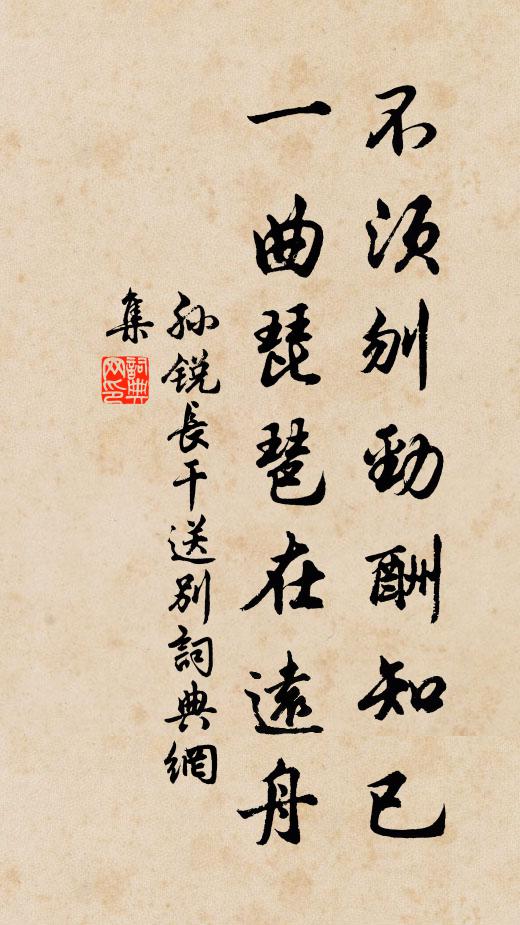 不須刎勁酬知已
一曲琵琶在遠舟
孙锐長干送别詞典網
集
詞典
网印